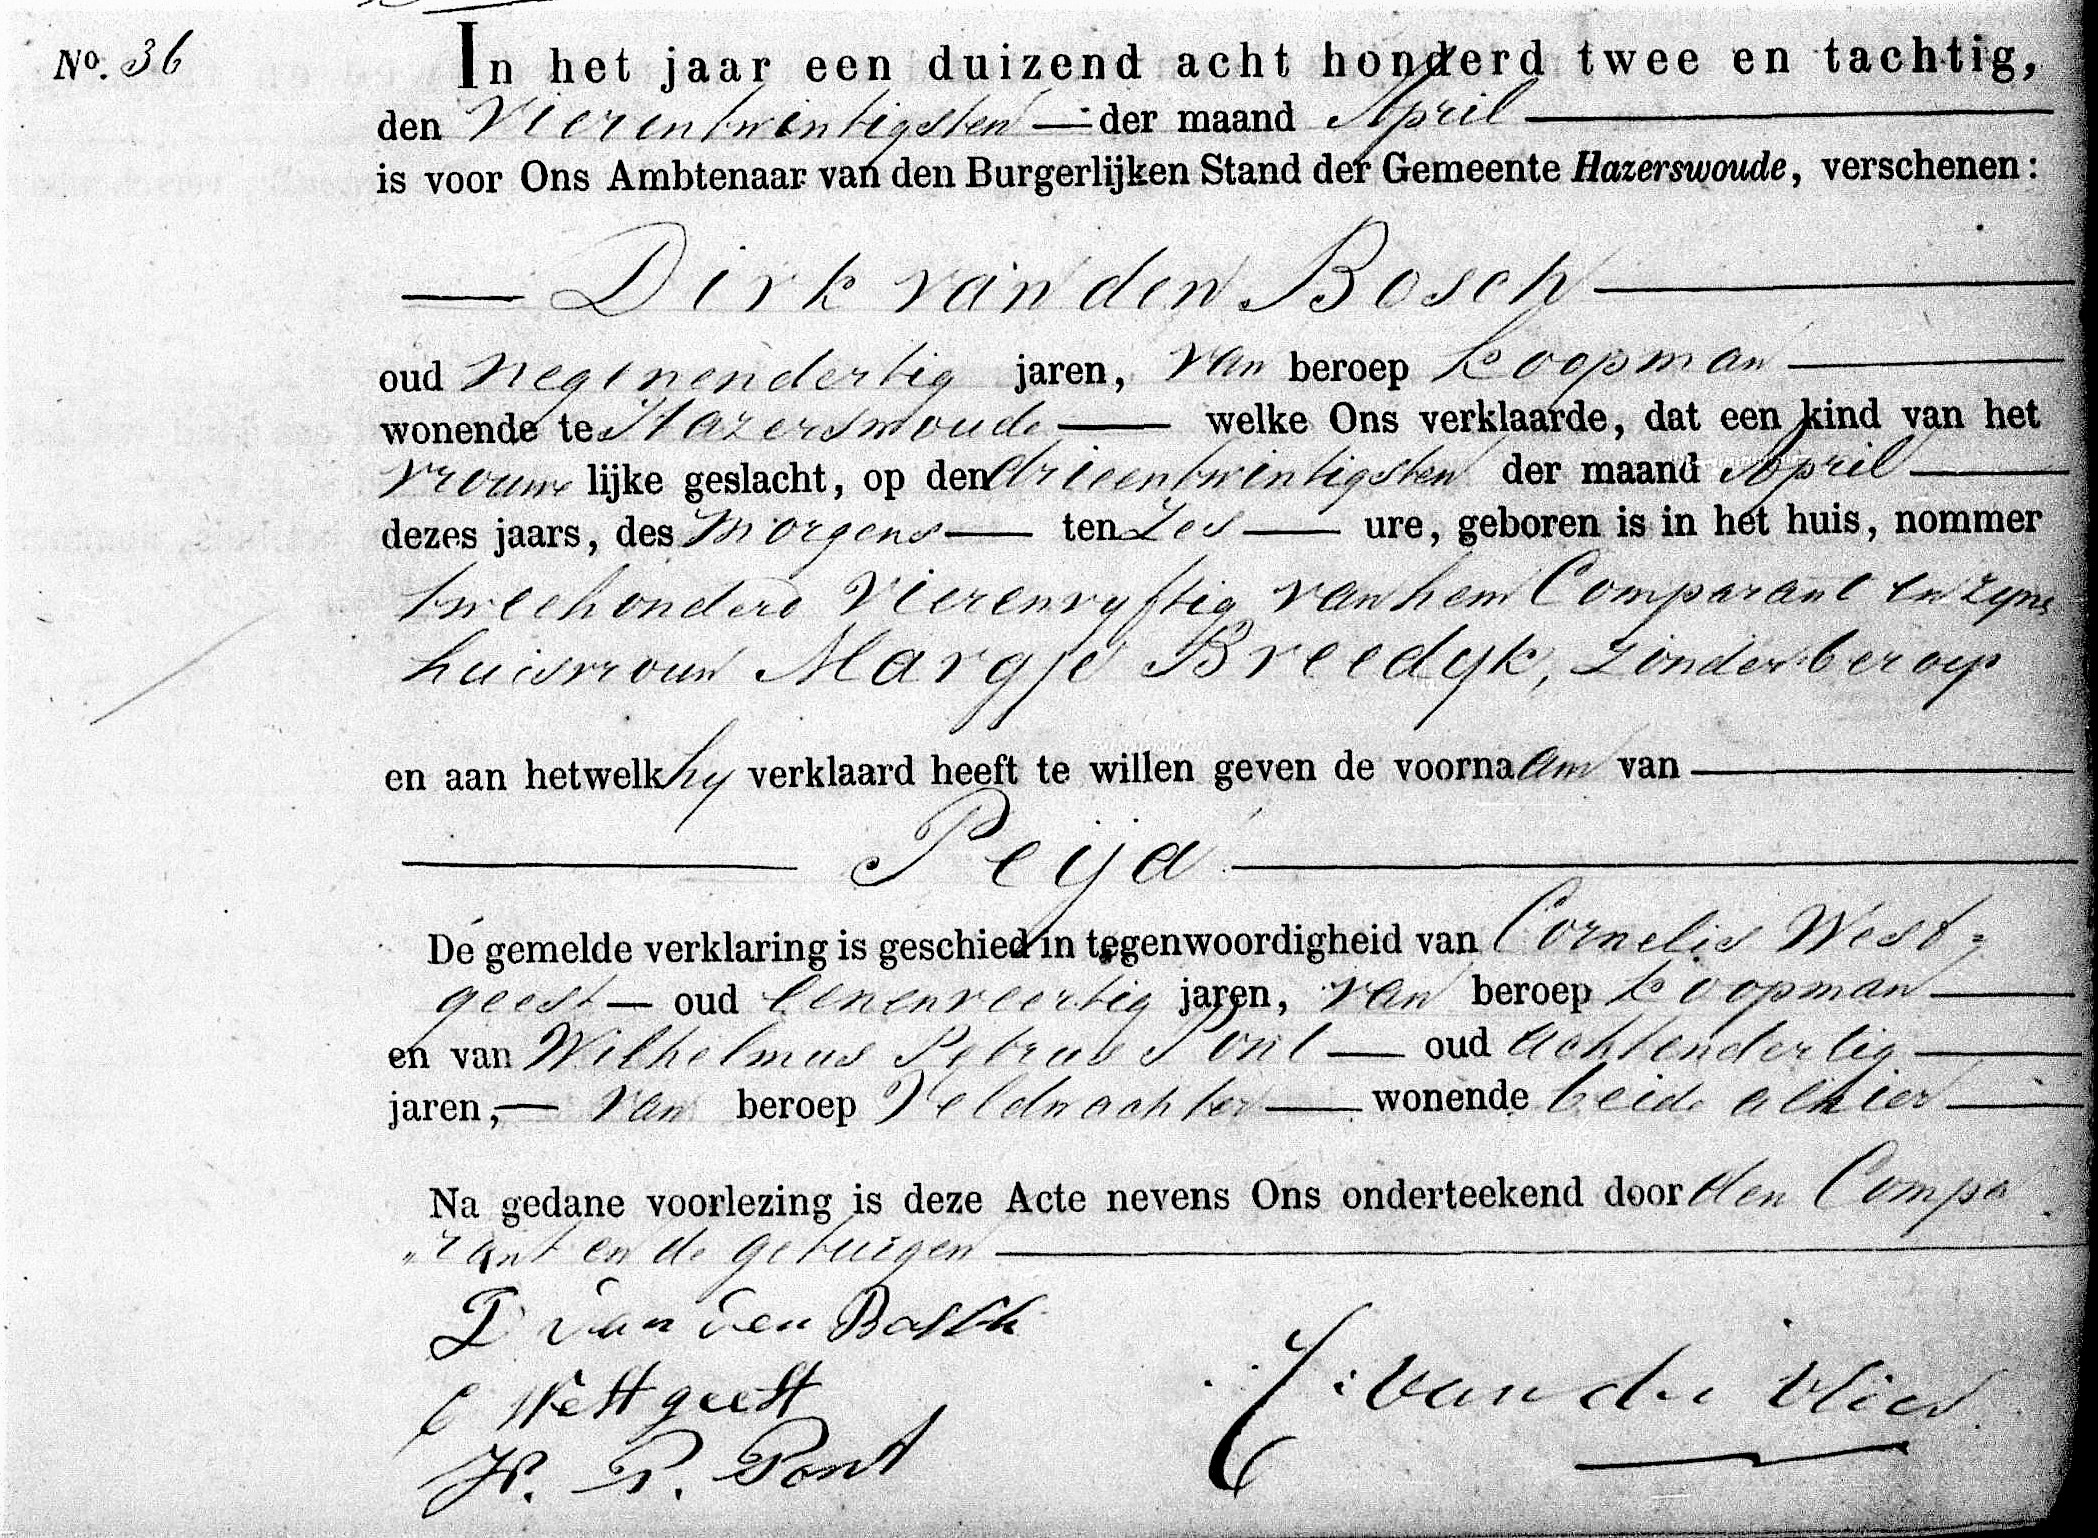 No. 36
In het jaar een duizend acht honderd twee en tachtig,
den Vierentwintigsten — der maand April —
is voor Ons Ambtenaar van den Burgerlijken Stand der Gemeente Hazerswoude, verschenen:
— Dirk van den Bosch —
oud negenendertig jaren, van beroep koopman —
wonende te Hazerswoude — welke Ons verklaarde, dat een kind van het
vrouwelijke geslacht, op den drieentwintigsten der maand April —
dezes jaars, des morgens — ten zes — ure, geboren is in het huis, nommer
tweehonderd vierenvyftig van hem Comparant en zyne
huisvrouw Margje Breedyk, zonder beroep
en aan hetwelk hy verklaard heeft te willen geven de voornaam van —
— Peija —
De gemelde verklaring is geschied in tegenwoordigheid van Cornelis West=
geest — oud eenenveertig jaren, van beroep koopman —
en van Wilhelmus Petrus Pont — oud achtendertig —
jaren, — van beroep Veldwachter — wonende beide alhier —
Na gedane voorlezing is deze Acte nevens Ons onderteekend door den Compa
"rant en de getuigen —
D van den Bosch
C Westgeest
W. P. Pont
van der Vlies